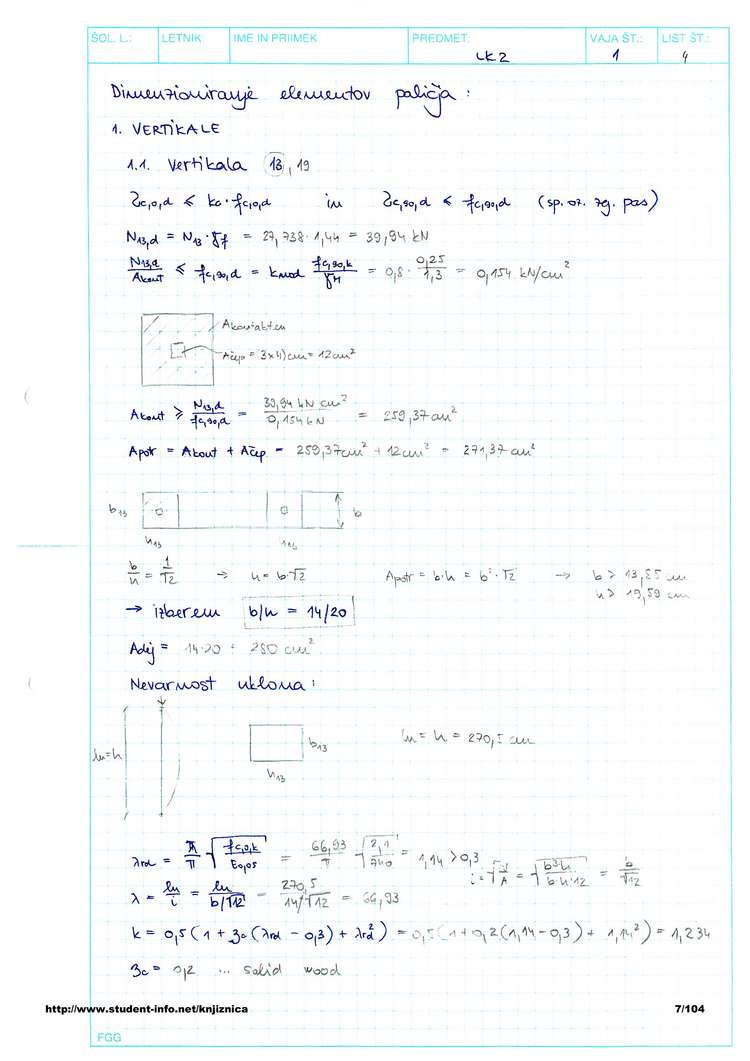 ŠOL. L.: LETNIK: IME IN PRIIMEK PREDMET: VAJA ŠT.: LIST ŠT.:
LK2 1 4
Dimenzioniranje elementov paličja :
1. VERTIKALE
1.1. Vertikala 13, 19
σc,0,d ≤ kc · fc,0,d in σc,90,d ≤ fc,90,d (sp. oz. zg. pas)
N13,d = N13 · γf = 27,738 · 1,44 = 39,94 kN
N13,d / Akont ≤ fc,90,d = kmod fc,90,k / γM = 0,8 · 0,25 / 1,3 = 0,154 kN/cm²
Akontakten
Ačep = 3×4) cm = 12 cm²
Akont ≥ N13,d / fc,90,d = 39,94 kN cm² / 0,154 kN = 259,37 cm²
Apotr = Akont + Ačep = 259,37 cm² + 12 cm² = 271,37 cm²
b13 b
h13
b/h = 1/√2 → h = b·√2 Apotr = b·h = b²·√2 → b > 13,85 cm
h > 19,59 cm
→ izberem b/h = 14/20
Adej = 14·20 = 280 cm²
Nevarnost uklona :
lu=h b13 lu = h = 270,5 cm
h13
λrel = λ/π √(fc,0,k / E0,05) = 66,93/π √(2,1/740) = 1,14 > 0,3
i = √(I/A) = √(b³h / b·h·12) = b/√12
λ = lu/i = lu / b/√12 = 270,5 / 14/√12 = 66,93
k = 0,5 (1 + βc (λrel − 0,3) + λrel²) = 0,5 (1 + 0,2 (1,14 − 0,3) + 1,14²) = 1,234
βc = 0,2 ... solid wood
http://www.student-info.net/knjiznica 7/104
FGG